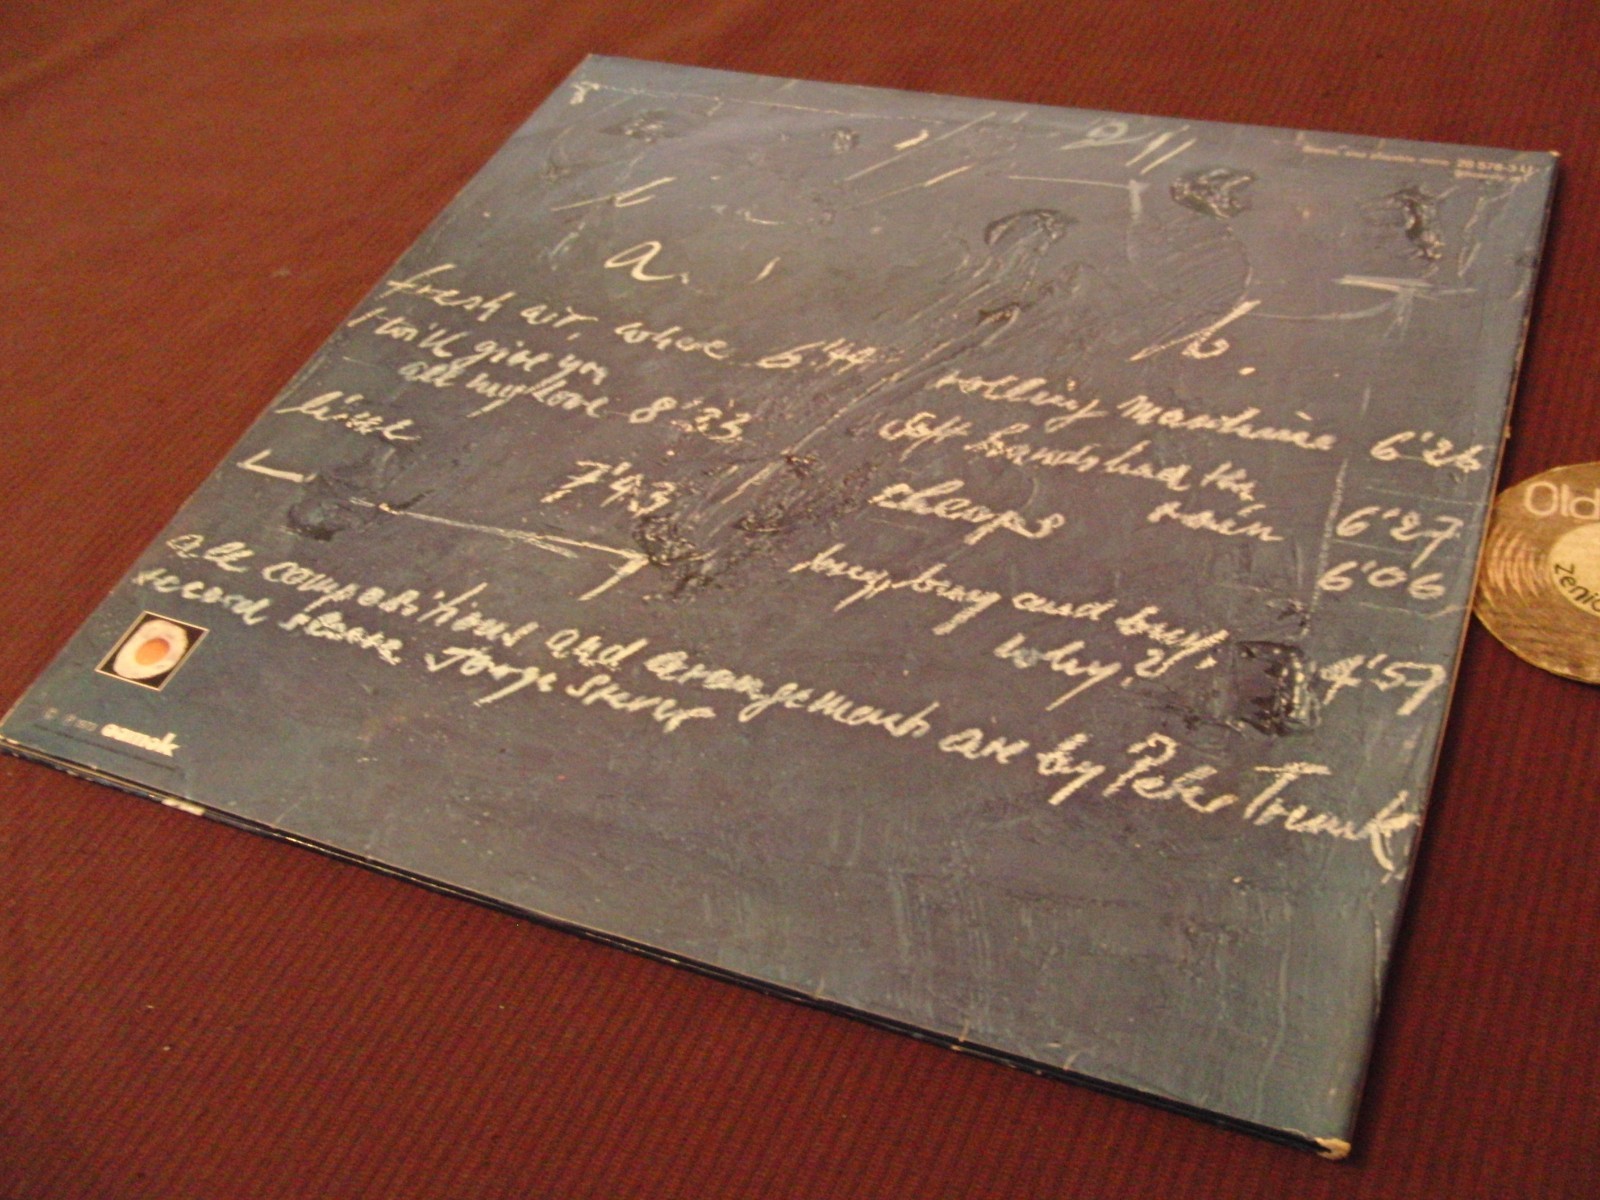 a.
fresh air, where 6'44
I will give you
all my love 8'33
7'43
b.
rolling 6'26
soft hands had the
rain 6'27
cheops 6'06
busy, busy and busy,
why? 4'57
all compositions and arangements are by Peter Trunk
record sleeve
1973
Old
Zenic